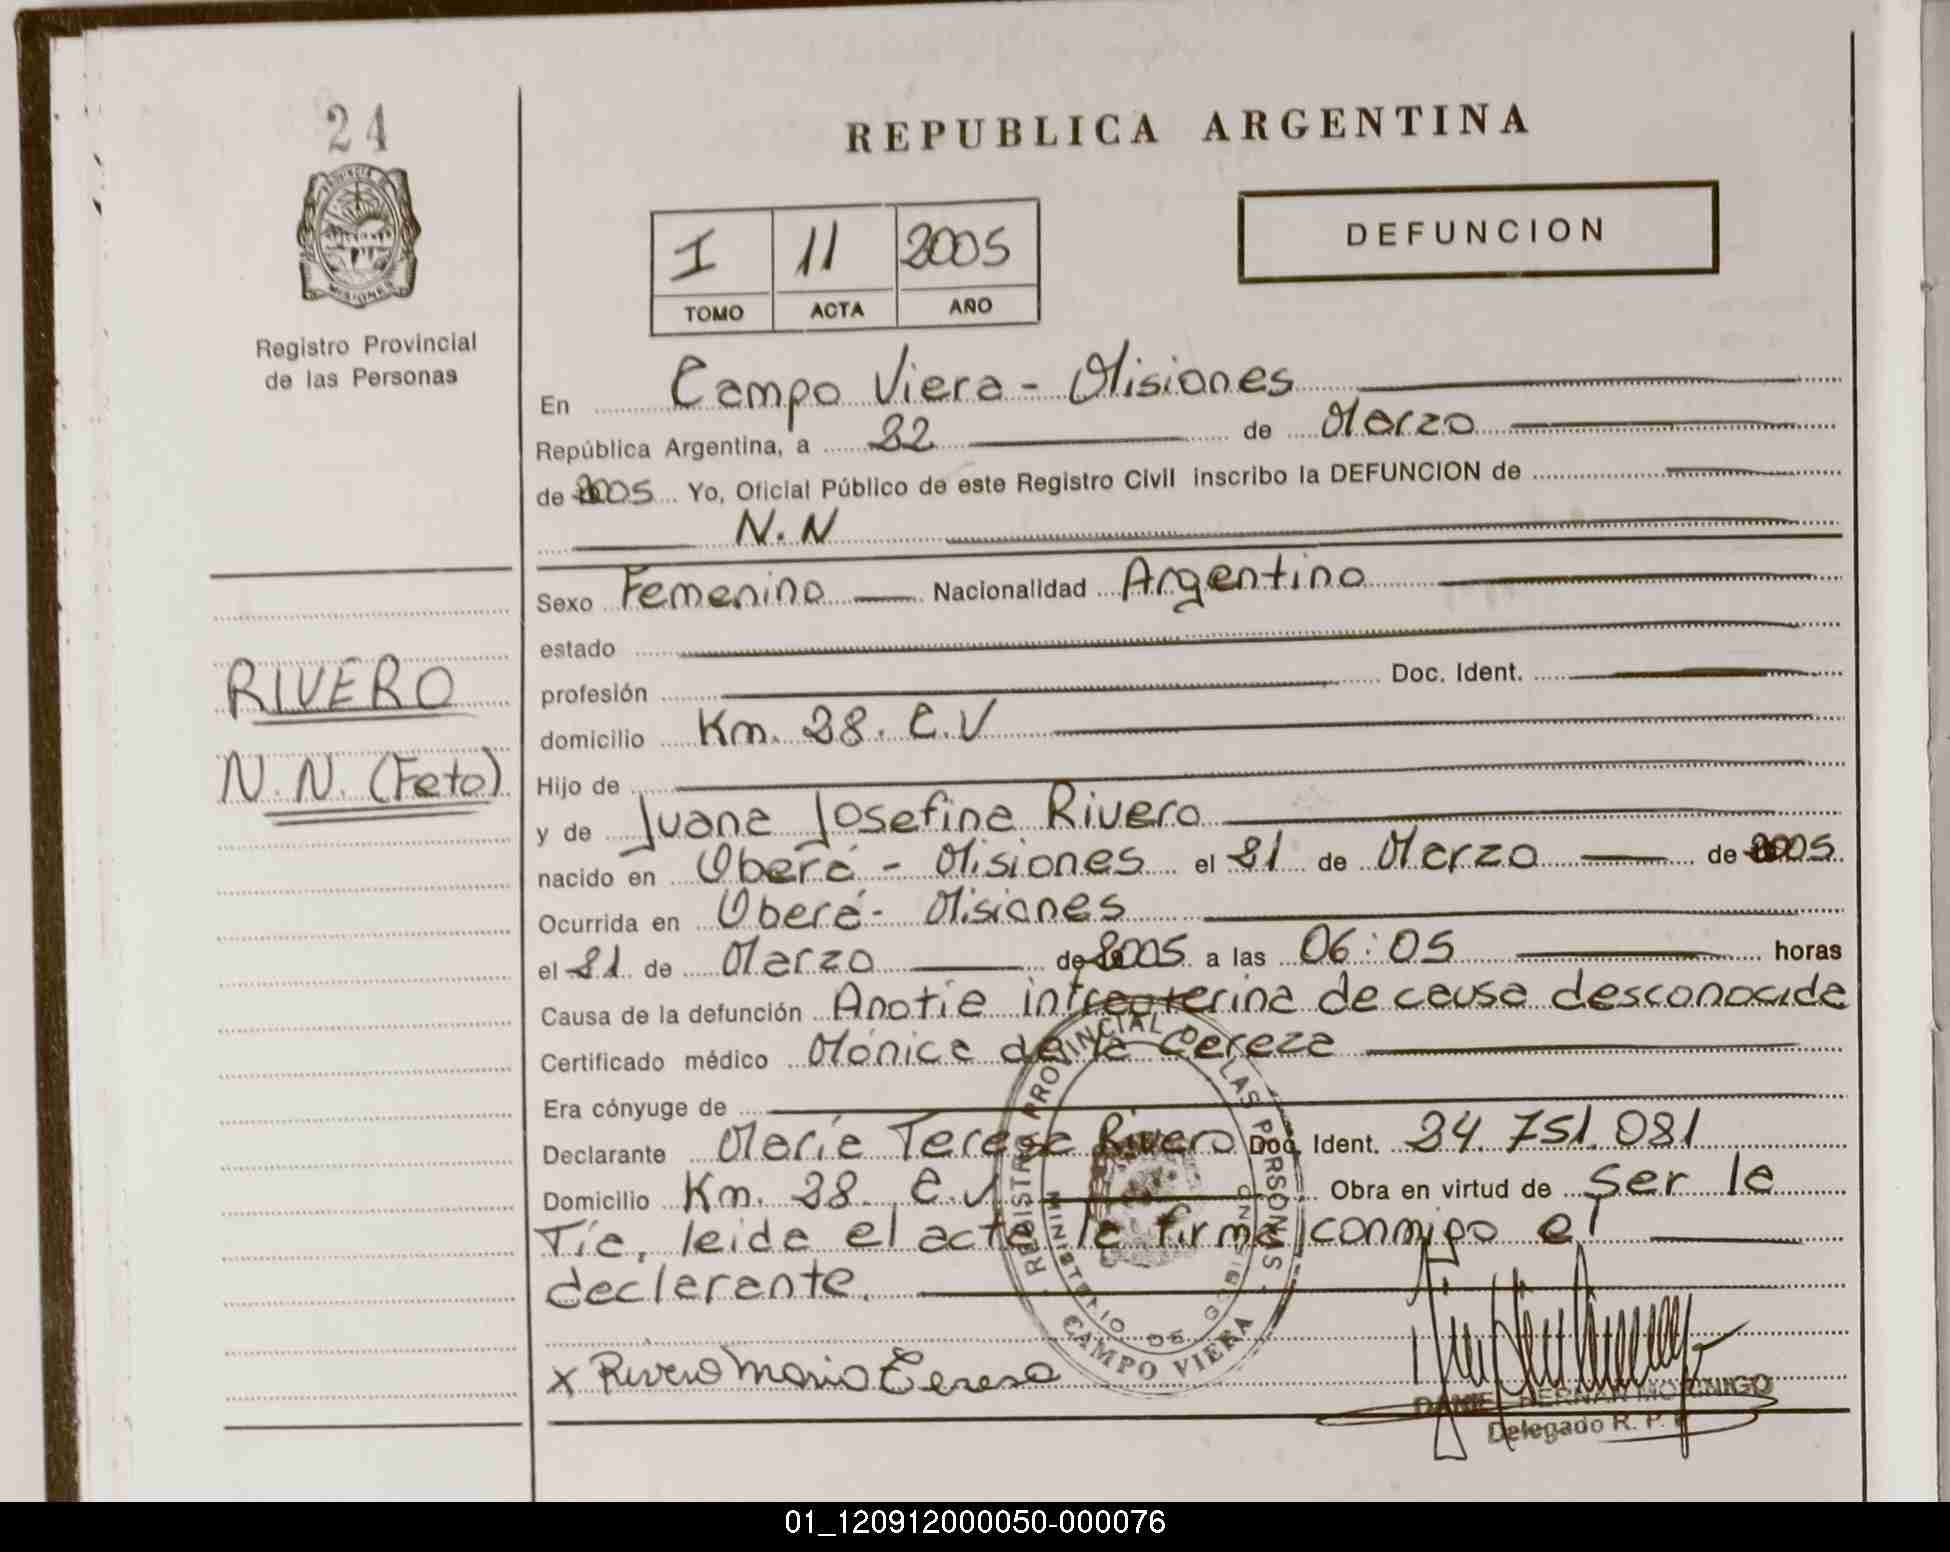 24
REPUBLICA ARGENTINA
PROVINCIA DE
MISIONES
Registro Provincial
de las Personas
I 11 2005
TOMO ACTA AÑO
DEFUNCION
En Campo Viera - Misiones
República Argentina, a 22 de Marzo
de 2005 Yo, Oficial Público de este Registro Civil inscribo la DEFUNCION de
N.N
Sexo Femenino Nacionalidad Argentino
estado
profesión Doc. Ident.
domicilio Km. 28. C.V
RIVERO
N.N. (Feto)
Hijo de
y de Juana Josefina Rivero
nacido en Oberá - Misiones el 21 de Marzo de 2005
Ocurrida en Oberá - Misiones
el 21 de Marzo de 2005 a las 06:05 horas
Causa de la defunción de causa desconocida
Certificado médico Mónica de la Cereza
Era cónyuge de
Declarante María Teresa Rivero Doc. Ident. 24.751.081
Domicilio Km. 28. C.V Obra en virtud de Ser la
Tía, leida el acta la firma conmigo el
declarante.
REGISTRO PROVINCIAL DE LAS PERSONAS
MINISTERIO DE GOBIERNO
CAMPO VIERA
x Rivero Maria Teresa
DANIEL HERNAN MORINIGO
Delegado R. P.
01_120912000050-000076